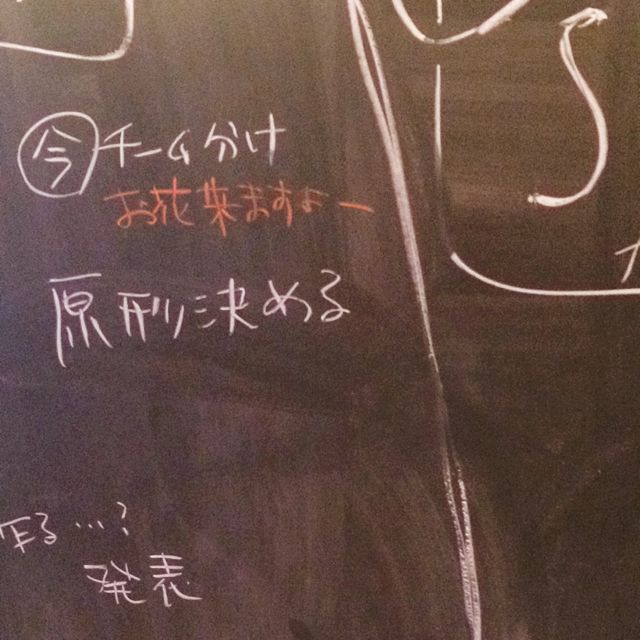 今 チーム分け
お花来ますよー
原形決める
作る…?
発表